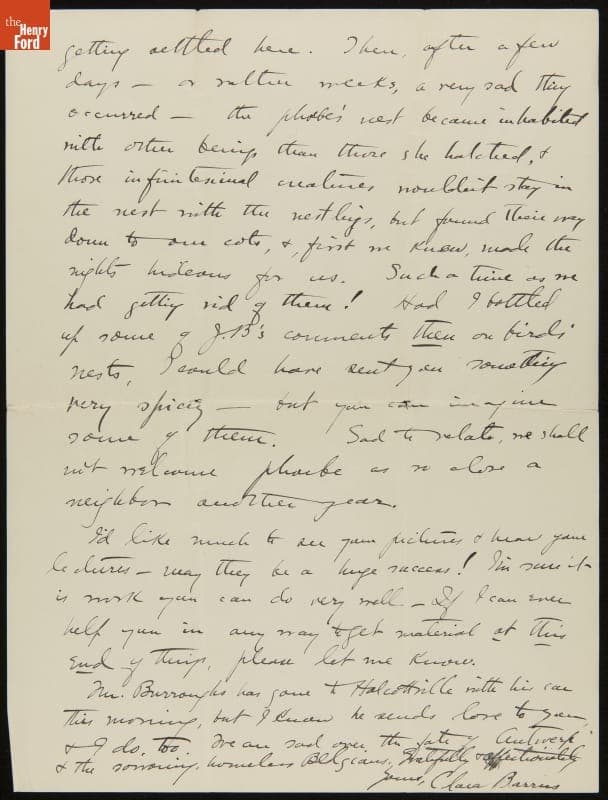 the
Henry
Ford
getting settled here. Then, after a few
days — or rather weeks, a very sad thing
occurred — the phoebe's nest became inhabited
with other beings than those she hatched, &
those infinitesimal creatures wouldn't stay in
the nest with the nestlings, but found their way
down to our cots, &, first we knew, made the
nights hideous for us. Such a time as we
had getting rid of them! Had I bottled
up some of J.B's comments then on birds'
nests, I could have sent you something
very spicy — but you can imagine
some of them. Sad to relate, we shall
not welcome phoebe as so close a
neighbor another year.
I'd like much to see your pictures & hear your
lectures — may they be a huge success! I'm sure it
is work you can do very well — If I can ever
help you in any way to get material at this
end of things, please let me know.
Mr. Burroughs has gone to Halcottville with his car
this morning, but I know he sends love to you,
& I do, too. We are sad over the fate of Antwerp
& the sorrowing, homeless Belgians, Gratefully & affectionately
Yours, Clara Barrus